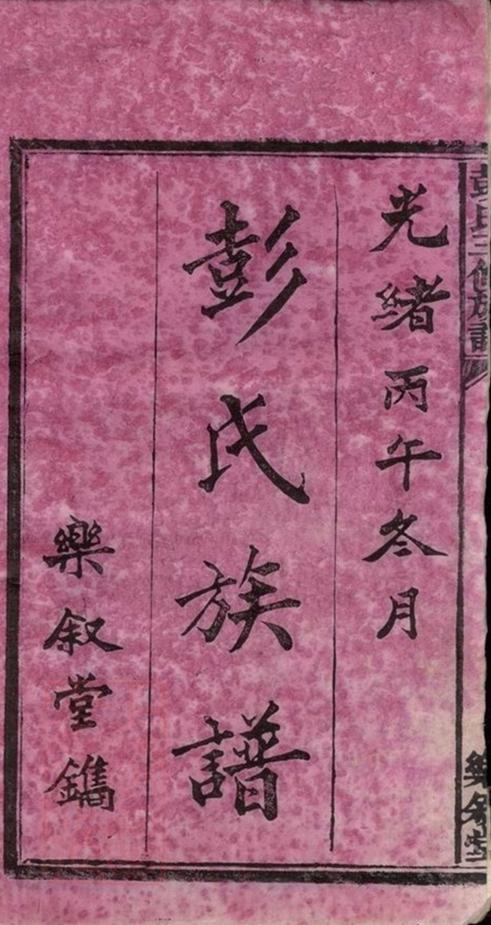 彭氏三修族譜
光緒丙午冬月
彭氏族譜
樂叙堂鐫